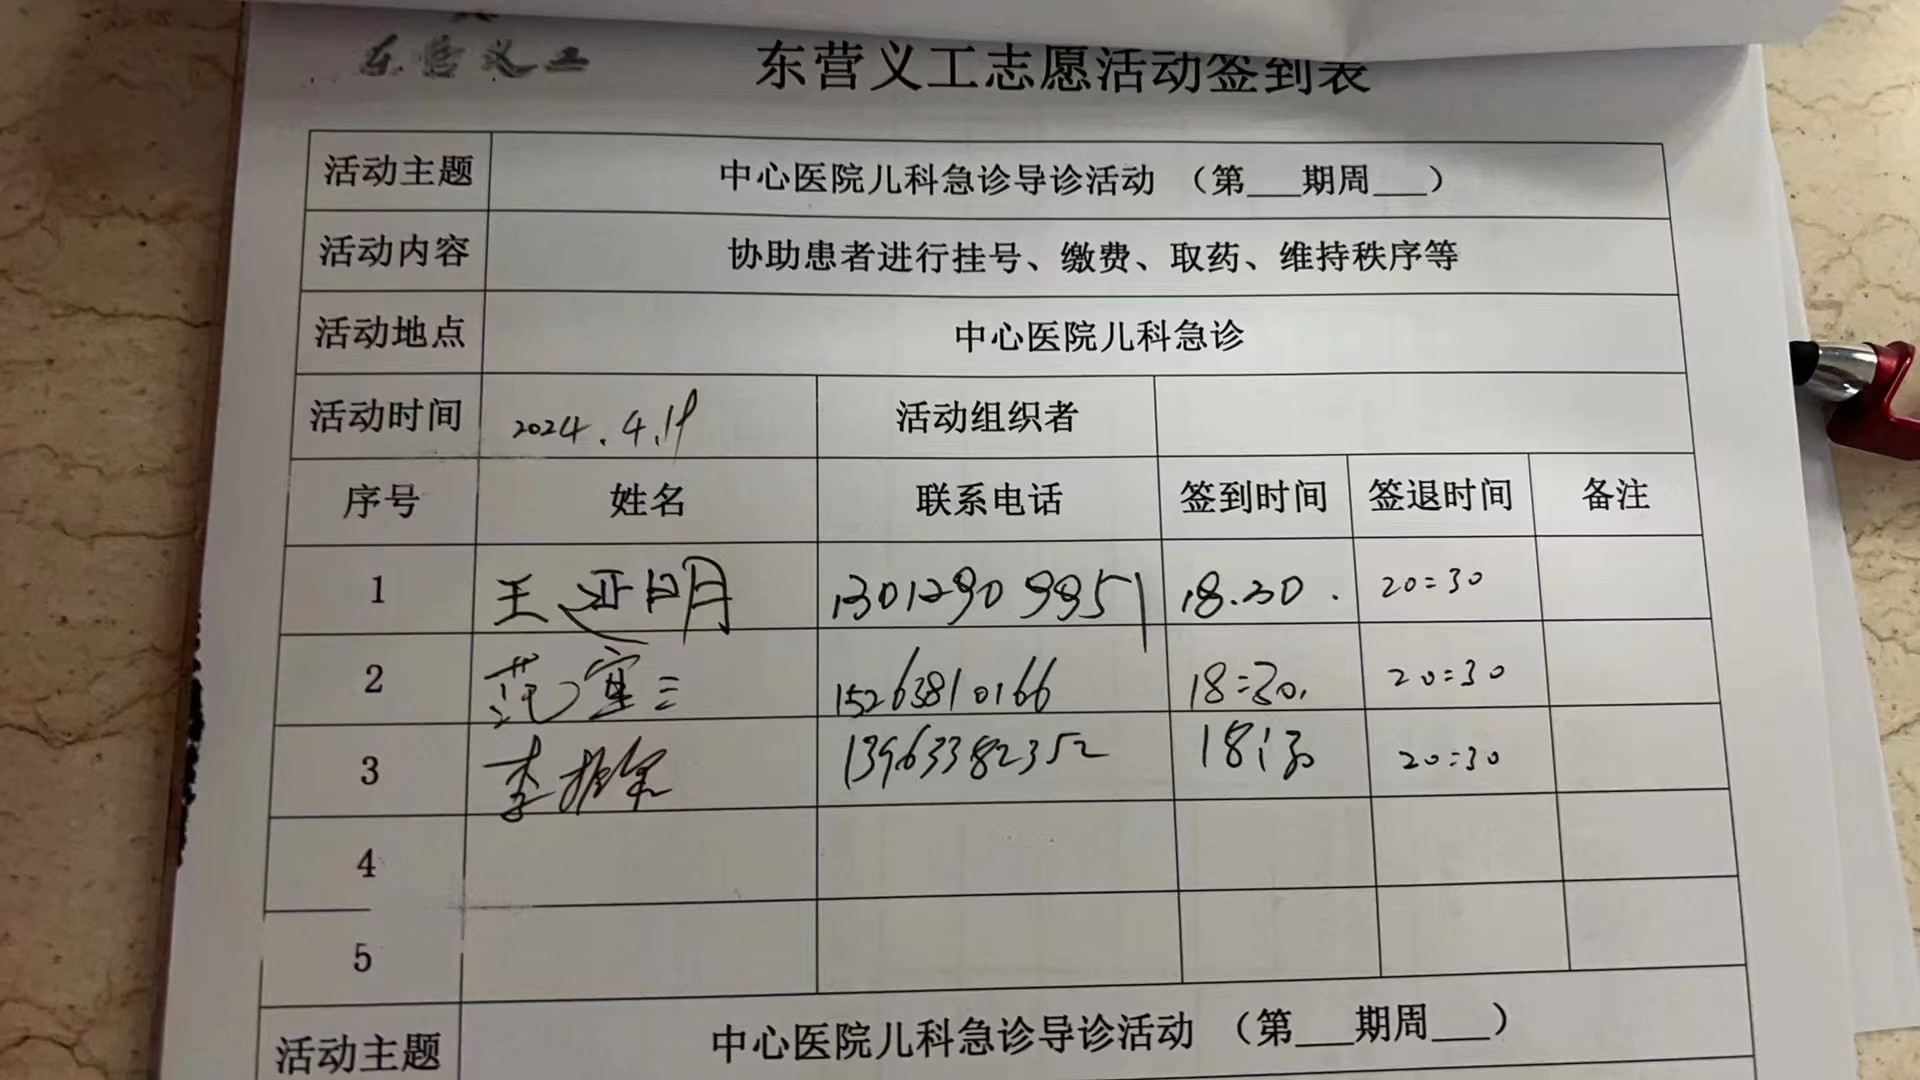 东营义工
东营义工志愿活动签到表
活动主题 中心医院儿科急诊导诊活动 （第___期周___）
活动内容 协助患者进行挂号、缴费、取药、维持秩序等
活动地点 中心医院儿科急诊
活动时间 2024.4.19 活动组织者
序号 姓名 联系电话 签到时间 签退时间 备注
1 王亚明 13012909951 18.30. 20:30
2 范 15263810166 18:30. 20:30
3 李振 13963382352 18:30 20:30
4
5
活动主题 中心医院儿科急诊导诊活动 （第___期周___）